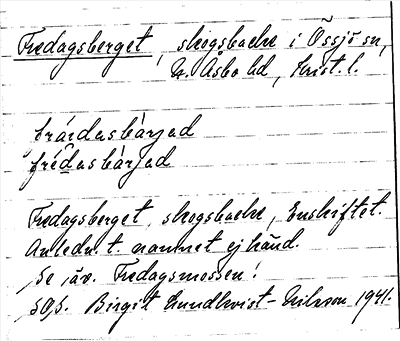 Fredagsberget, skogsbacke i Össjö sn,
N. Åsbo hd, Krist. l.
fredasbärjad
Fredagsberget, skogsbacke, Enskiftet.
Anledn. t. namnet ej känd.
Se äv. Fredagsmossen!
Birgit Lundkvist-Nilsson 1941.